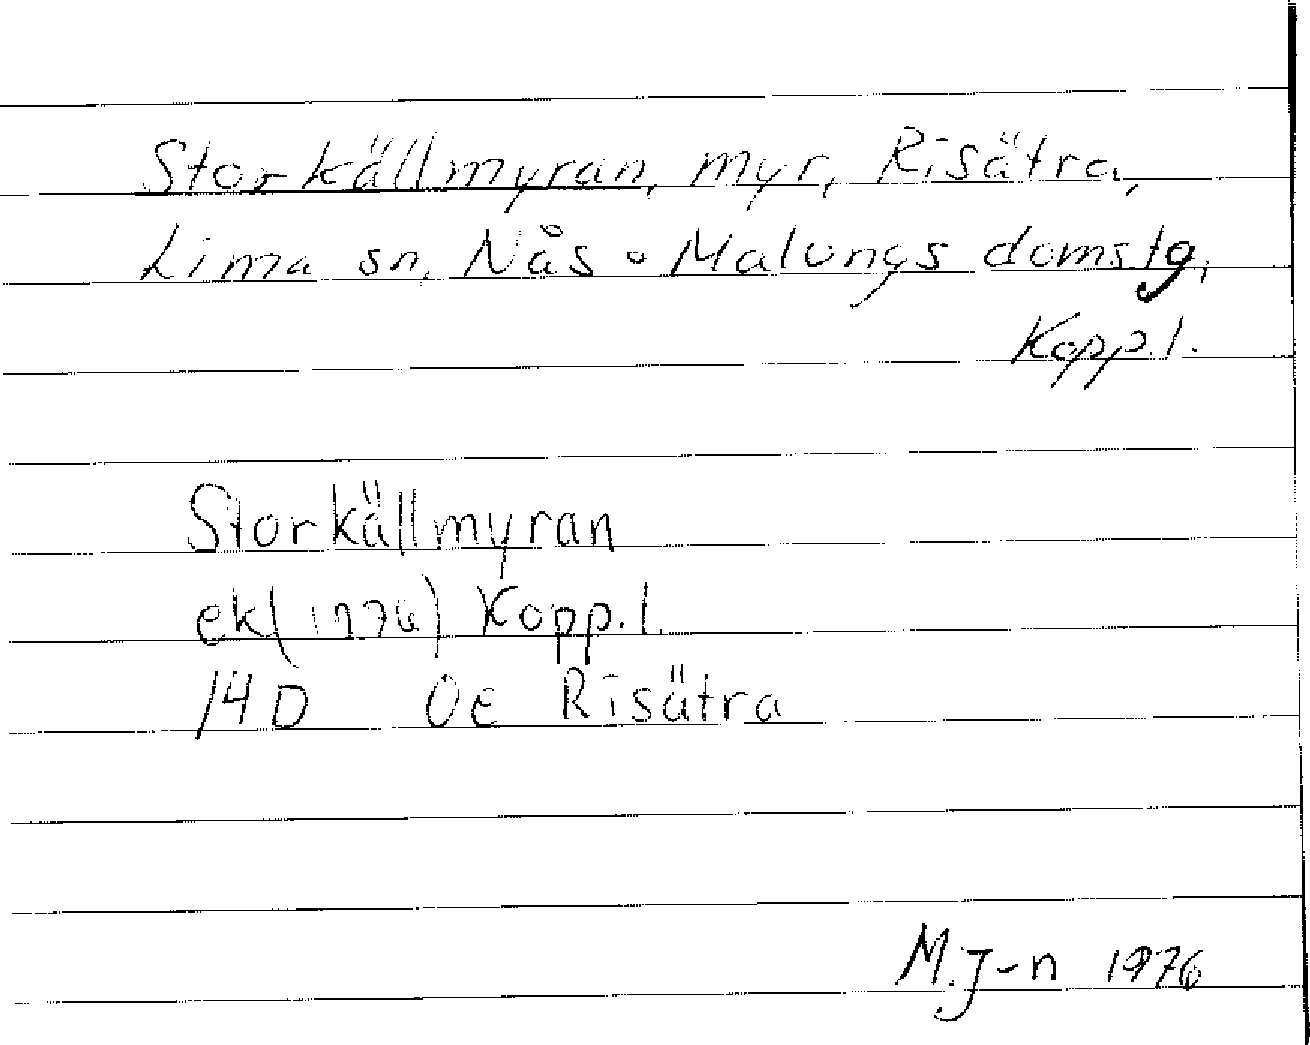 Storkällmyran, myr, Risätra,
Lima sn, Nås o Malungs domstg,
Kopp.l.
Storkällmyran
ek(1976) Kopp.l.
14D 0e Risätra
M.J-n 1976